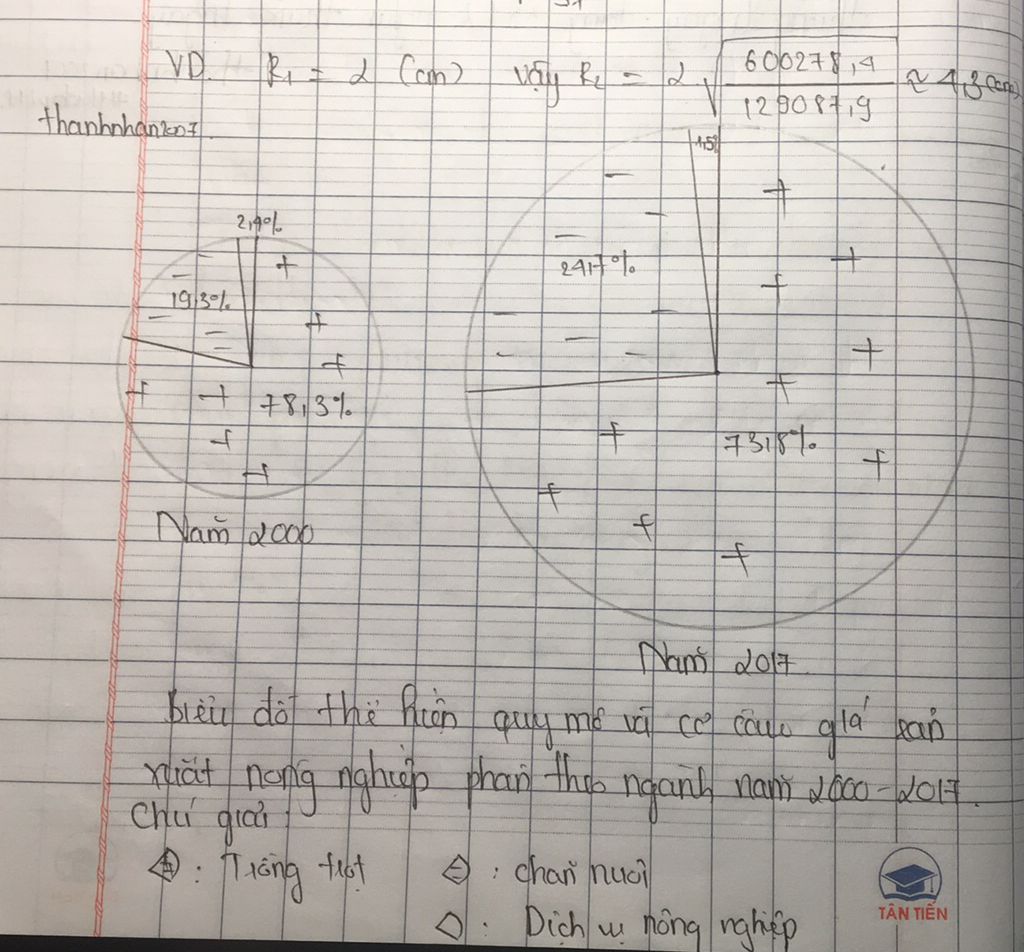 VD. R₁ = 2 (cm) vậy R₂ = 2 √(600278,4 / 129087,9) ≈ 4,3 (cm)
thanhnhan2007
2,4%
19,3%
78,3%
Năm 2000
1,5%
24,7%
73,8%
Năm 2017
biểu đồ thể hiện quy mô và cơ cấu giá sản
xuất nông nghiệp phân theo ngành năm 2000-2017.
Chú giải:
+ : Trồng trọt
- : chăn nuôi
: Dịch vụ nông nghiệp
TÂN TIẾN